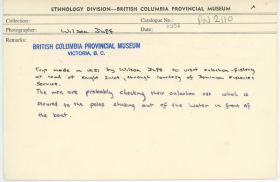 ETHNOLOGY DIVISION—BRITISH COLUMBIA PROVINCIAL MUSEUM
Collection:
Catalogue No.: PN 2110
Photographer: Wilson Duff
Date:
Remarks:
BRITISH COLUMBIA PROVINCIAL MUSEUM
VICTORIA, B.C.
Trip made in 1951 by Wilson Duff to visit oolachan-fishery
at head of Knight Inlet, through courtesy of Dominion Fisheries
Service.
The men are probably checking their oolachan net which is
secured to the poles sticking out of the water in front of
the boat.